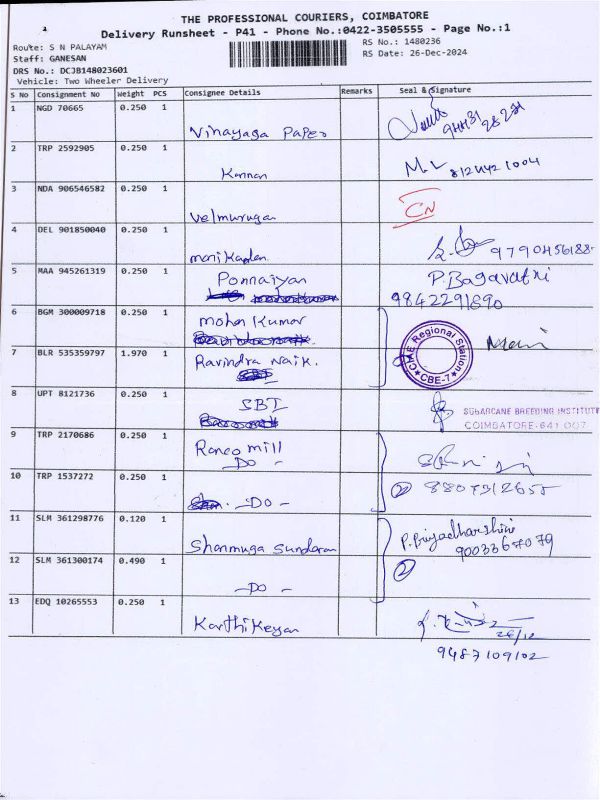 THE PROFESSIONAL COURIERS, COIMBATORE
Delivery Runsheet - P41 - Phone No.:0422-3505555 - Page No.:1
Route: S N PALAYAM
RS No.: 1480236
Staff: GANESAN
RS Date: 26-Dec-2024
DRS No.: DCJB148023601
Vehicle: Two Wheeler Delivery
S No Consignment No Weight PCS Consignee Details Remarks Seal & Signature
1 NGD 70665 0.250 1
Vinayaga Paper
2 TRP 2592905 0.250 1
Kannan
3 NDA 906546582 0.250 1 CN
Velmurugan
4 DEL 901850040 0.250 1
manikandan 9790456188
5 MAA 945261319 0.250 1 Ponnaiyan P.Bagavathi
9842291690
6 BGM 300009718 0.250 1 mohan Kumar
CME Regional Station
CBE-7
Mani
7 BLR 535359797 1.970 1 Ravindra Naik.
8 UPT 8121736 0.250 1 SBI
SUGARCANE BREEDING INSTITUTE
COIMBATORE-641 007
9 TRP 2170686 0.250 1 Ranco mill
-Do-
10 TRP 1537272 0.250 1 2
-Do-
11 SLM 361298776 0.120 1 P.Priyadharshini
Shanmuga Sundaram 9003367079
12 SLM 361300174 0.490 1 2
-Do-
13 EDQ 10265553 0.250 1
Karthikeyan
26/12
9487109102